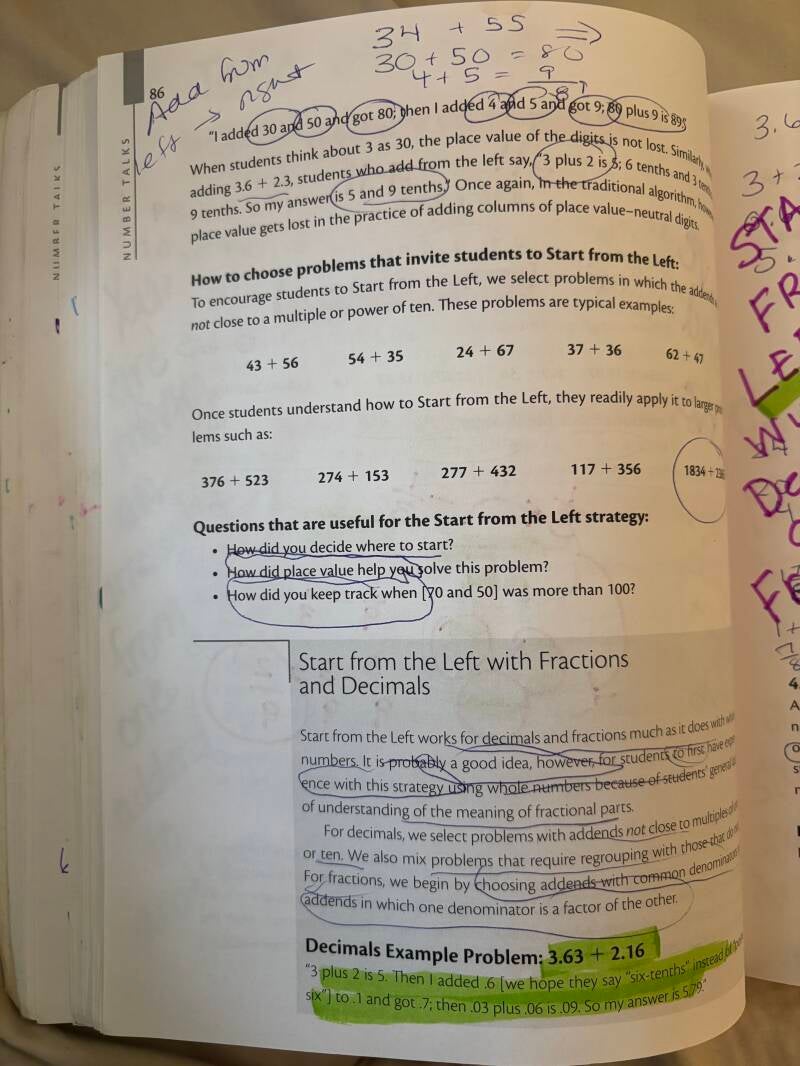 34 + 55 ⇒
30 + 50 = 80
4 + 5 = 9
Add from
left → right
86
NUMBER TALKS
NUMBER TALKS
"I added 30 and 50 and got 80; then I added 4 and 5 and got 9; 80 plus 9 is 89."
When students think about 3 as 30, the place value of the digits is not lost. Similarly,
adding 3.6 + 2.3, students who add from the left say, "3 plus 2 is 5; 6 tenths and 3
9 tenths. So my answer is 5 and 9 tenths." Once again, in the traditional algorithm,
place value gets lost in the practice of adding columns of place value–neutral digits.
How to choose problems that invite students to Start from the Left:
To encourage students to Start from the Left, we select problems in which the addends
not close to a multiple or power of ten. These problems are typical examples:
43 + 56 54 + 35 24 + 67 37 + 36 62 + 47
Once students understand how to Start from the Left, they readily apply it to larger
lems such as:
376 + 523 274 + 153 277 + 432 117 + 356 1834 +
Questions that are useful for the Start from the Left strategy:
• How did you decide where to start?
• How did place value help you solve this problem?
• How did you keep track when [70 and 50] was more than 100?
Start from the Left with Fractions
and Decimals
Start from the Left works for decimals and fractions much as it does with
numbers. It is probably a good idea, however, for students to first have
ence with this strategy using whole numbers because of students' general
of understanding of the meaning of fractional parts.
For decimals, we select problems with addends not close to multiples of
or ten. We also mix problems that require regrouping with those that do
For fractions, we begin by choosing addends with common denominators
addends in which one denominator is a factor of the other.
Decimals Example Problem: 3.63 + 2.16
"3 plus 2 is 5. Then I added .6 [we hope they say "six-tenths" instead of "point
six"] to .1 and got .7; then .03 plus .06 is .09. So my answer is 5.79."
3.6
3 +
STA
5.
FR
LE